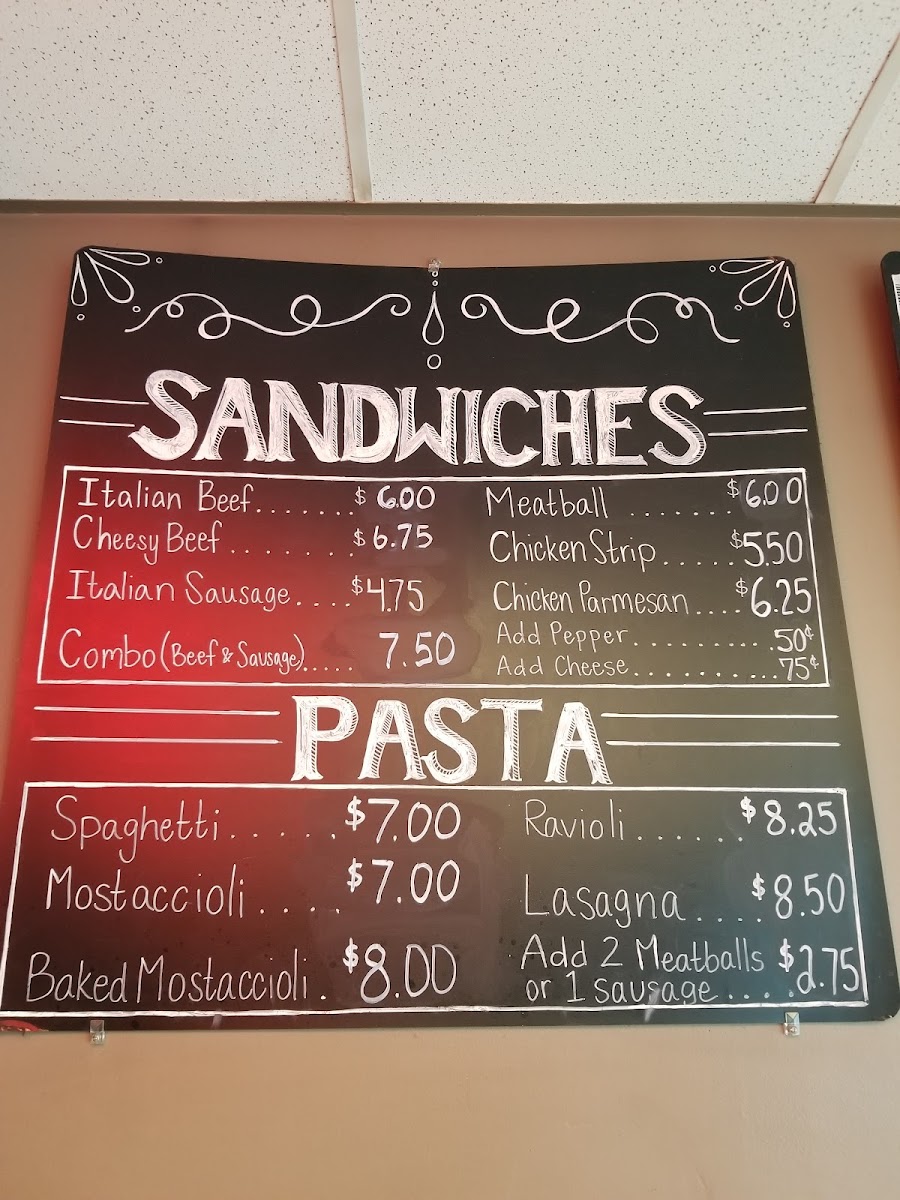 SANDWICHES
Italian Beef....... $6.00
Cheesy Beef......... $6.75
Italian Sausage.... $4.75
Combo (Beef & Sausage)..... 7.50
Meatball ....... $6.00
Chicken Strip..... $5.50
Chicken Parmesan.... $6.25
Add Pepper........... .50¢
Add Cheese............ 75¢
PASTA
Spaghetti...... $7.00
Mostaccioli.... $7.00
Baked Mostaccioli. $8.00
Ravioli...... $8.25
Lasagna.... $8.50
Add 2 Meatballs $2.75
or 1 sausage....